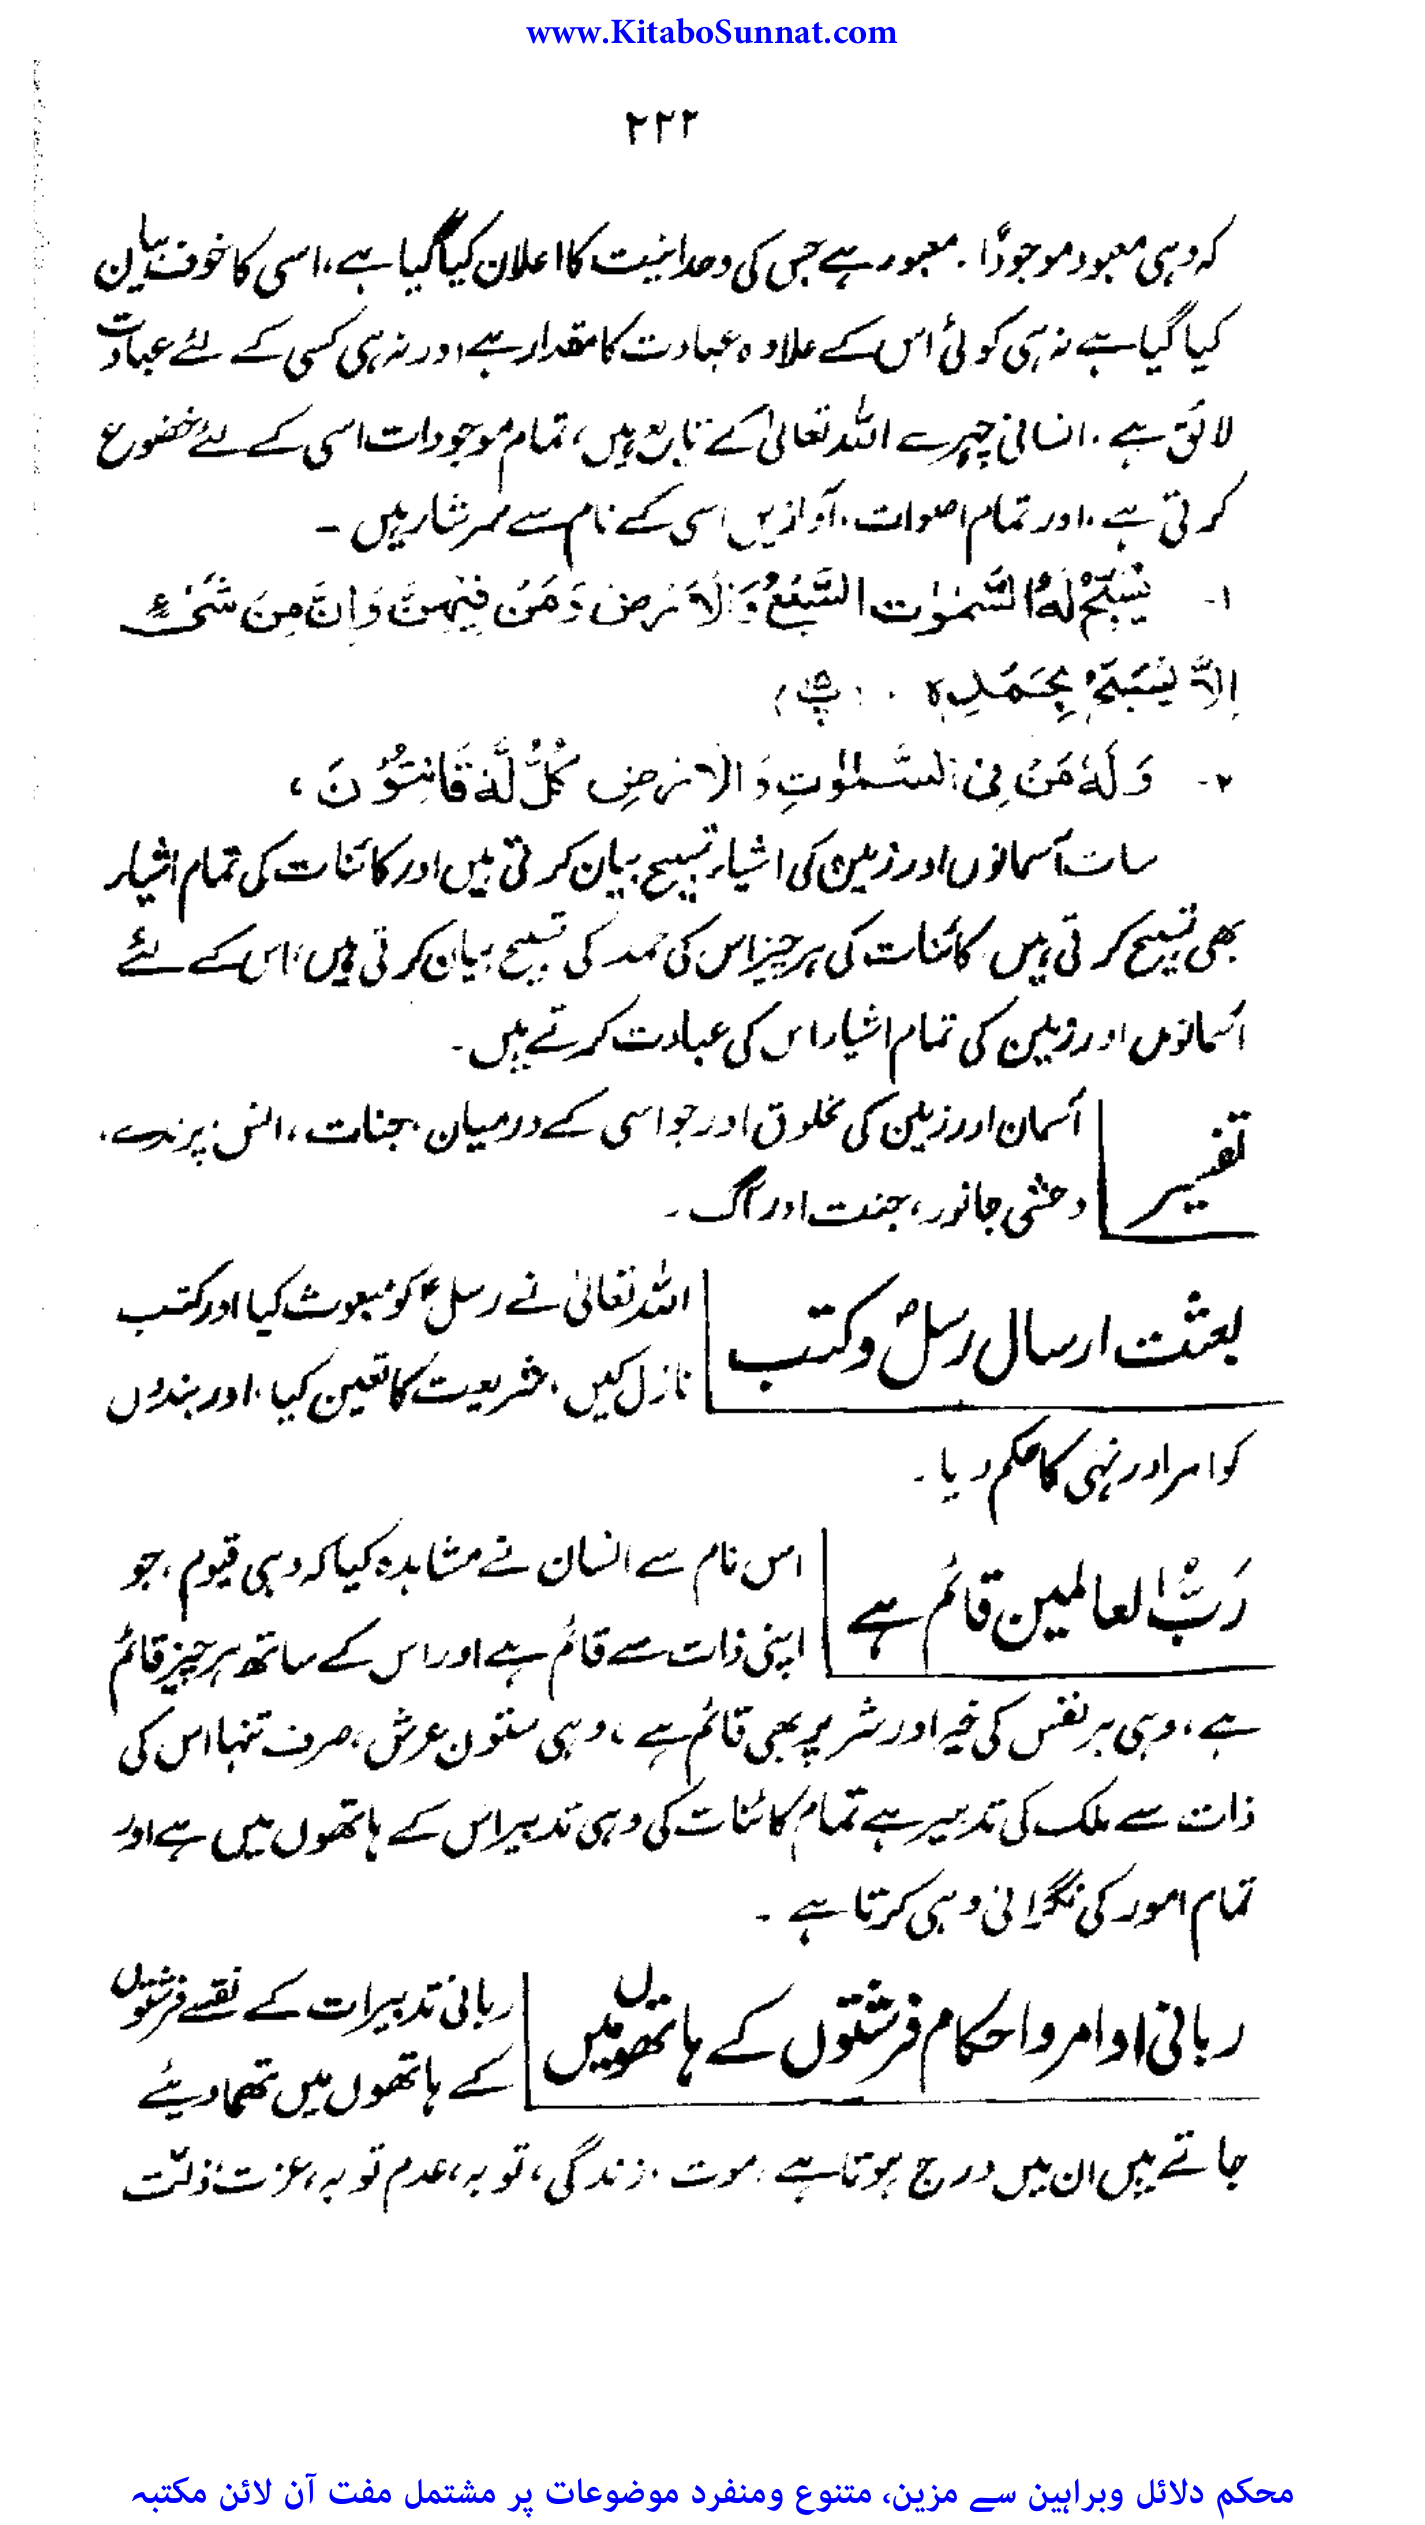 www.KitaboSunnat.com
۲۲۲
کہ وہی معبود موجودًا. معبور ہے جس کی وحدانیت کا اعلان کیا گیا ہے، اسی کا خوف بیان
کیا گیا ہے نہ ہی کوئی اس کے علاوہ عبادت کا مقدار ہے اور نہ ہی کسی کے لئے عبادت
لائق ہے . انسانی چہرے اللہ تعالیٰ کے تابع ہیں، تمام موجودات اسی کے لئے خضوع
کرتی ہے . اور تمام اصوات . آوازیں اسی کے نام سے سرشار ہیں ۔
۱- یُسَبِّحُ لَهُ السَّمٰوٰت السَّبْعُ وَالْاَرْضُ وَمَنْ فِیْهِنَّ وَاِنْ مِنْ شَیْءٍ
اِلَّا یُسَبِّحُ بِحَمْدِهٖ . (پ۱۵)
۲- وَلَهٗ مَنْ فِی السَّمٰوٰتِ وَالْاَرْضِ کُلٌّ لَّهٗ قَانِتُوْنَ ،
سات آسمانوں اور زمین کی اشیاء تسبیح بیان کرتی ہیں اور کائنات کی تمام اشیاء
بھی تسبیح کرتی ہیں کائنات کی ہر چیز اس کی حمد کی تسبیح بیان کرتی ہیں، اس کے لئے
آسمانوں اور زمین کی تمام اشیاء اس کی عبادت کرتے ہیں ۔
تفسیر
آسمان اور زمین کی مخلوق اور جو اسی کے درمیان . جنات ، انس، پرندے،
وحشی جانور ، جنت اور آگ ۔
بعثت ارسال رسلؑ و کتب
اللہ تعالیٰ نے رسلؑ کو مبعوث کیا اور کتب
نازل کیں ، شریعت کا تعین کیا ، اور بندوں
کو امر اور نہی کا حکم دیا ۔
رَبُّ العالمین قائم ہے
اس نام سے انسان نے مشاہدہ کیا کہ وہی قیوم ، جو
اپنی ذات سے قائم ہے اور اس کے ساتھ ہر چیز قائم
ہے ، وہی ہر نفس کی خیر اور شر پر بھی قائم ہے ، وہی ستون عرش ، صرف تنہا اس کی
ذات سے ملک کی تدبیر ہے تمام کائنات کی وہی تدبیر اس کے ہاتھوں میں ہے اور
تمام امور کی نگرانی وہی کرتا ہے ۔
ربانی اوامر و احکام فرشتوں کے ہاتھوں میں
ربانی تدبیرات کے نقشے فرشتوں
کے ہاتھوں میں تھما دیئے
جاتے ہیں ان میں درج ہوتا ہے . موت . زندگی ، توبہ ، عدم توبہ ، عزت، ذلّت
محکم دلائل وبراہین سے مزین، متنوع ومنفرد موضوعات پر مشتمل مفت آن لائن مکتبہ